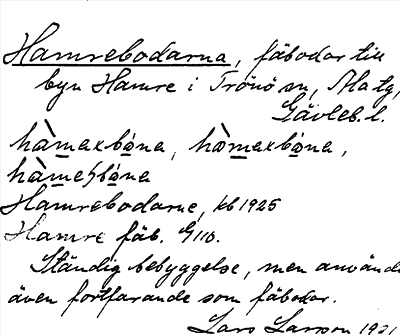 Hamrebodarna, fäbodar till
byn Hamre i Trönö sn, Ala tg,
Gävleb. l.
hàmaxbǿna, hæ̀maxbǿna,
hàmeʃbǿna
Hamrebodarne, kb 1925
Hamre fäb. G110.
Ständig bebyggelse, men använde
även fortfarande som fäbodar.
Lars Larsson 1921